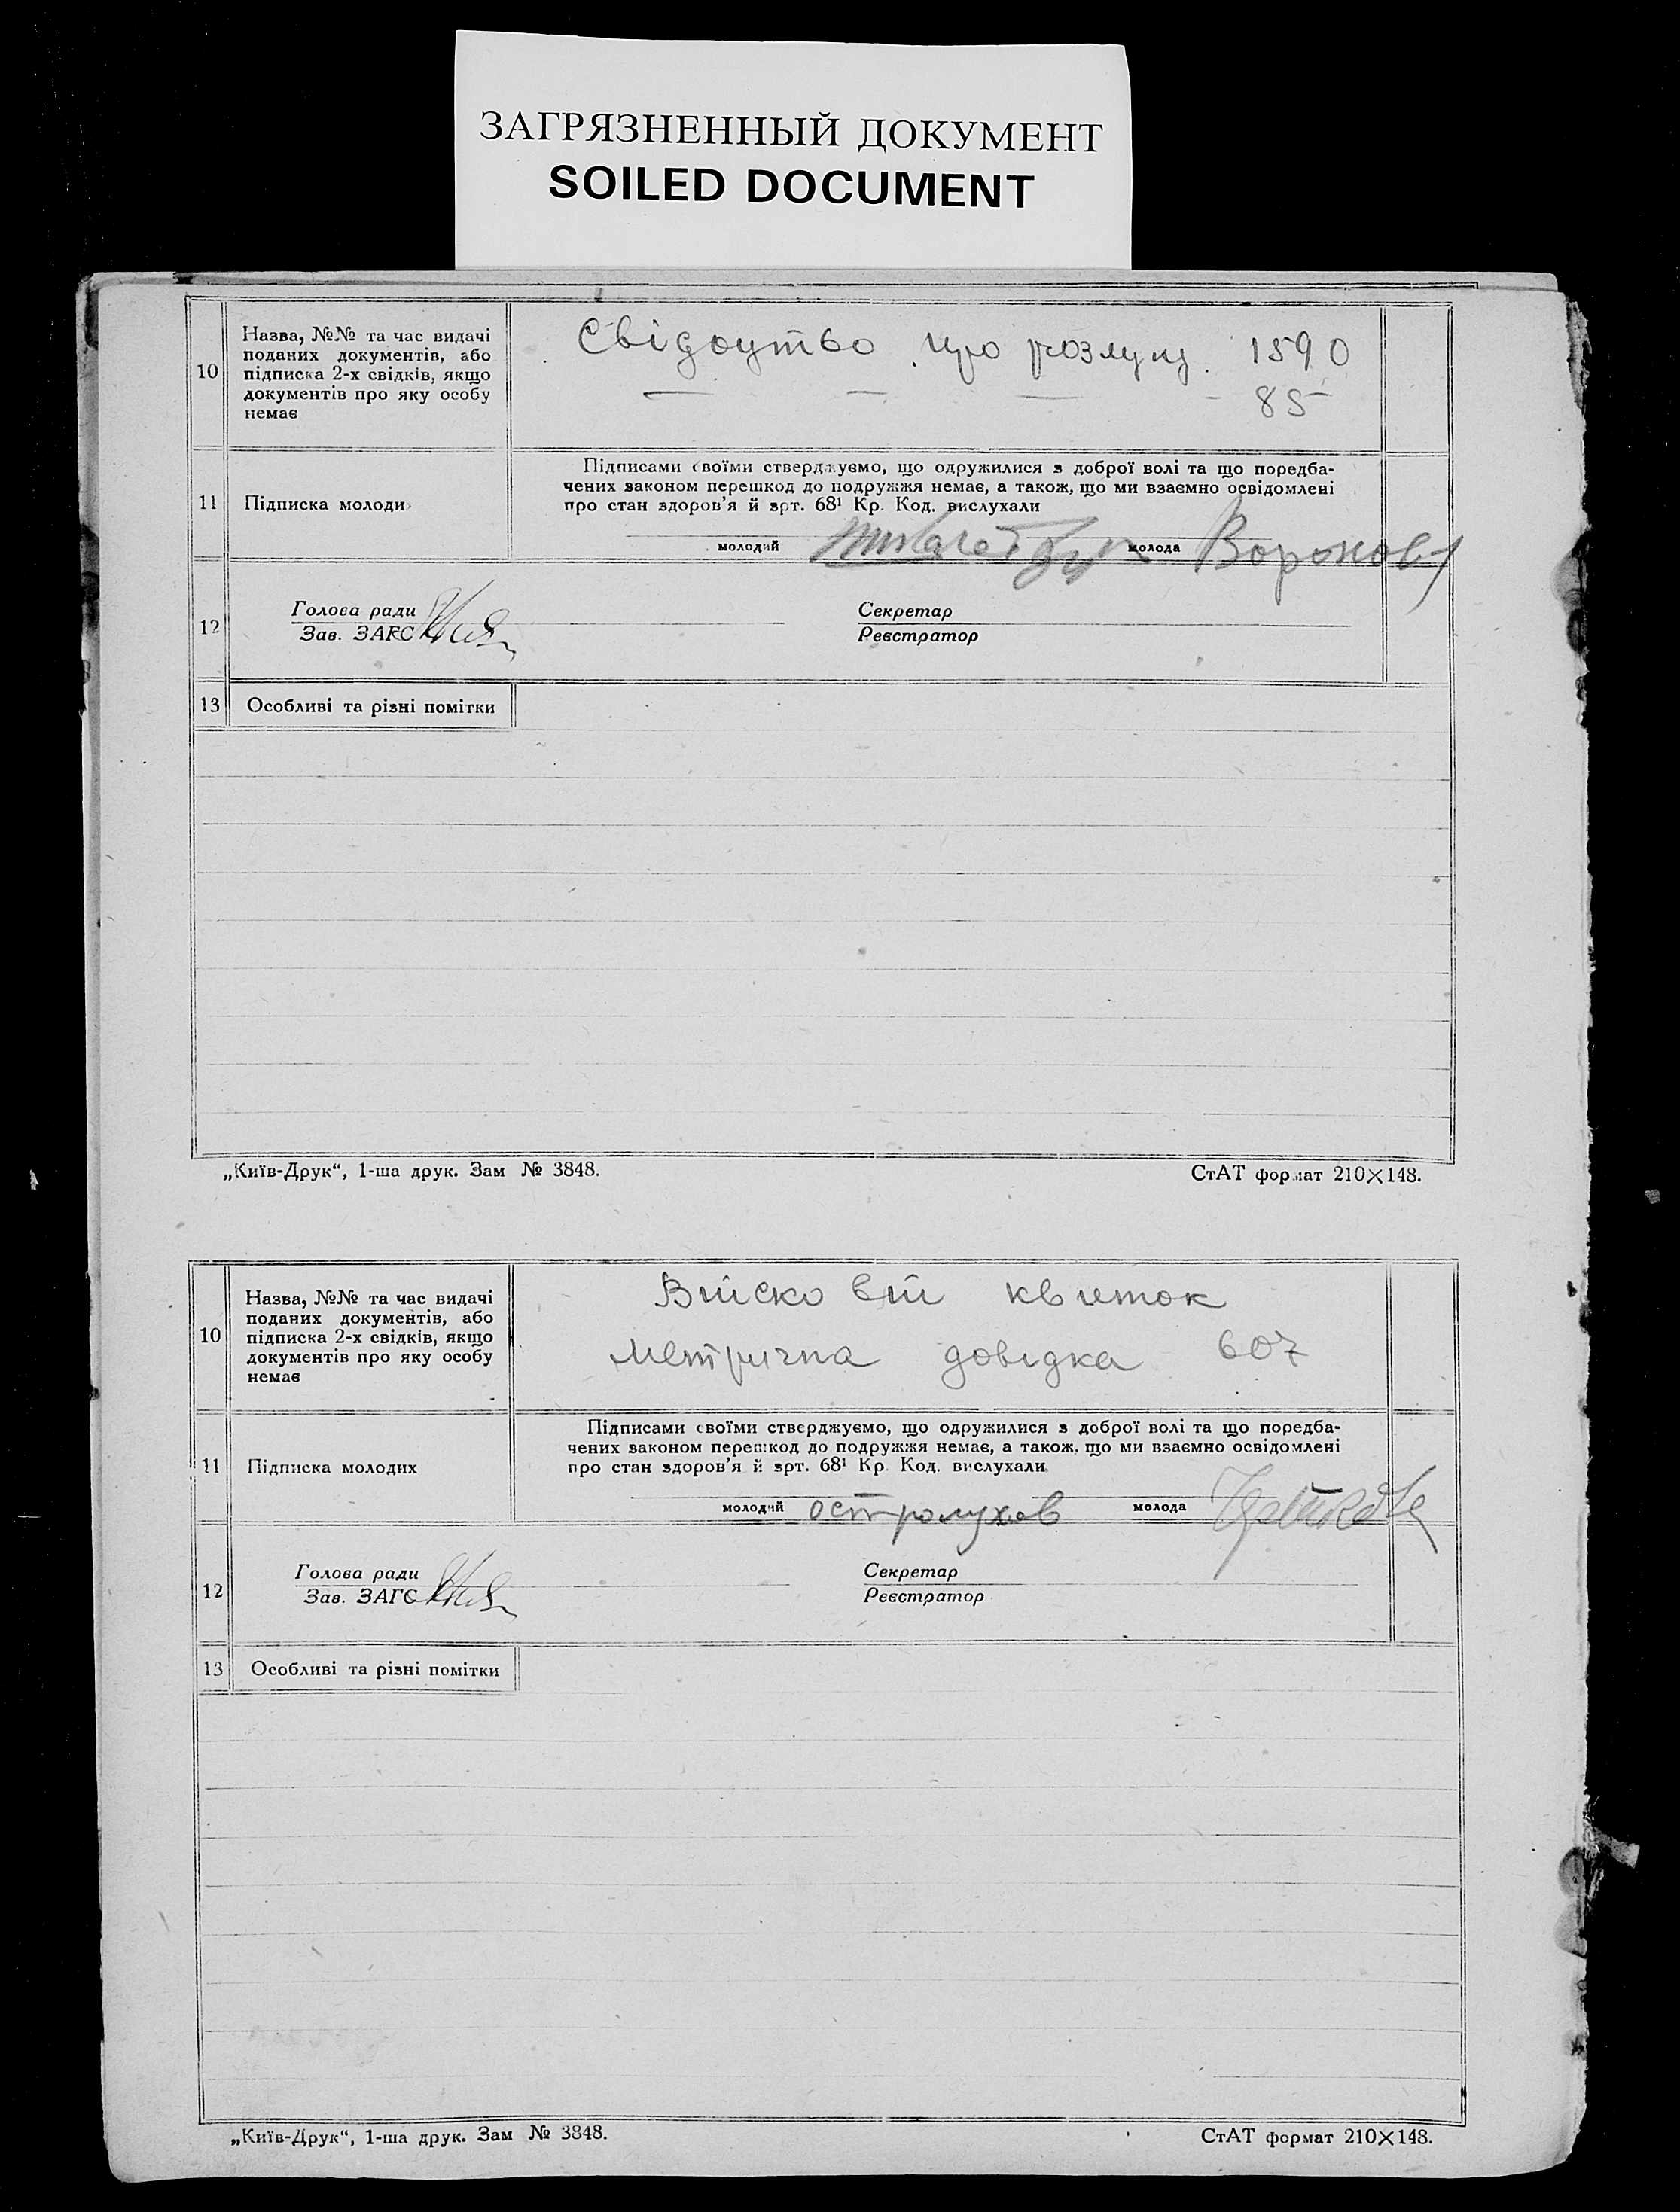 ЗАГРЯЗНЕННЫЙ ДОКУМЕНТ
SOILED DOCUMENT
10
Назва, №№ та час видачі
поданих документів, або
підписка 2-х свідків, якщо
документів про яку особу
немає
Свідоцтво про розлуку 1590
— — — - 85
11
Підписка молоди
Підписами своїми стверджуємо, що одружилися з доброї волі та що поредба-
чених законом перешкод до подружжя немає, а також, що ми взаємно освідомлені
про стан здоров'я й арт. 68¹ Кр. Код. вислухали
молодий молода Воронов
12
Голова ради
Зав. ЗАГС
Секретар
Реєстратор
13
Особливі та різні помітки
„Київ-Друк“, 1-ша друк. Зам № 3848.
СтАТ формат 210×148.
10
Назва, №№ та час видачі
поданих документів, або
підписка 2-х свідків, якщо
документів про яку особу
немає
Війсковій квиток
Метрична довідка 607
11
Підписка молодих
Підписами своїми стверджуємо, що одружилися з доброї волі та що поредба-
чених законом перешкод до подружжя немає, а також, що ми взаємно освідомлені
про стан здоров'я й арт. 68¹ Кр. Код. вислухали
молодий Остролухов молода
12
Голова ради
Зав. ЗАГС
Секретар
Реєстратор
13
Особливі та різні помітки
„Київ-Друк“, 1-ша друк. Зам № 3848.
СтАТ формат 210×148.